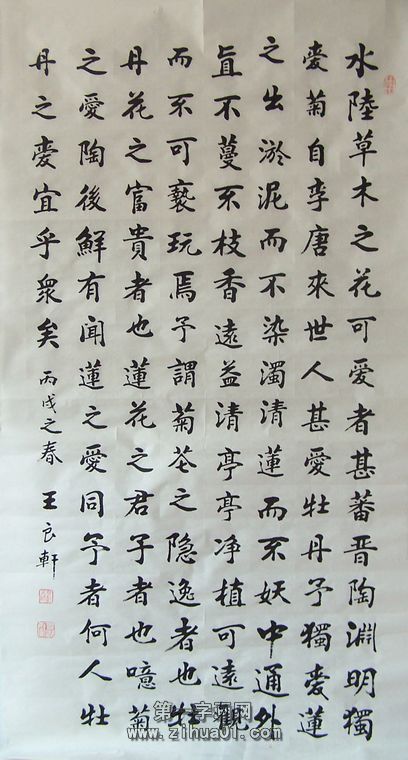 水陸草木之花可愛者甚蕃晋陶淵明獨
愛菊自李唐來世人甚愛牡丹予獨愛蓮
之出淤泥而不染濁清蓮而不妖中通外
直不蔓不枝香遠益清亭亭净植可遠觀
而不可褻玩焉予謂菊花之隐逸者也牡
丹花之富貴者也蓮花之君子者也噫菊
之愛陶後鮮有聞蓮之愛同予者何人牡
丹之愛宜乎衆矣 丙戌之春 王良軒
第一字画网
www.zihua01.com